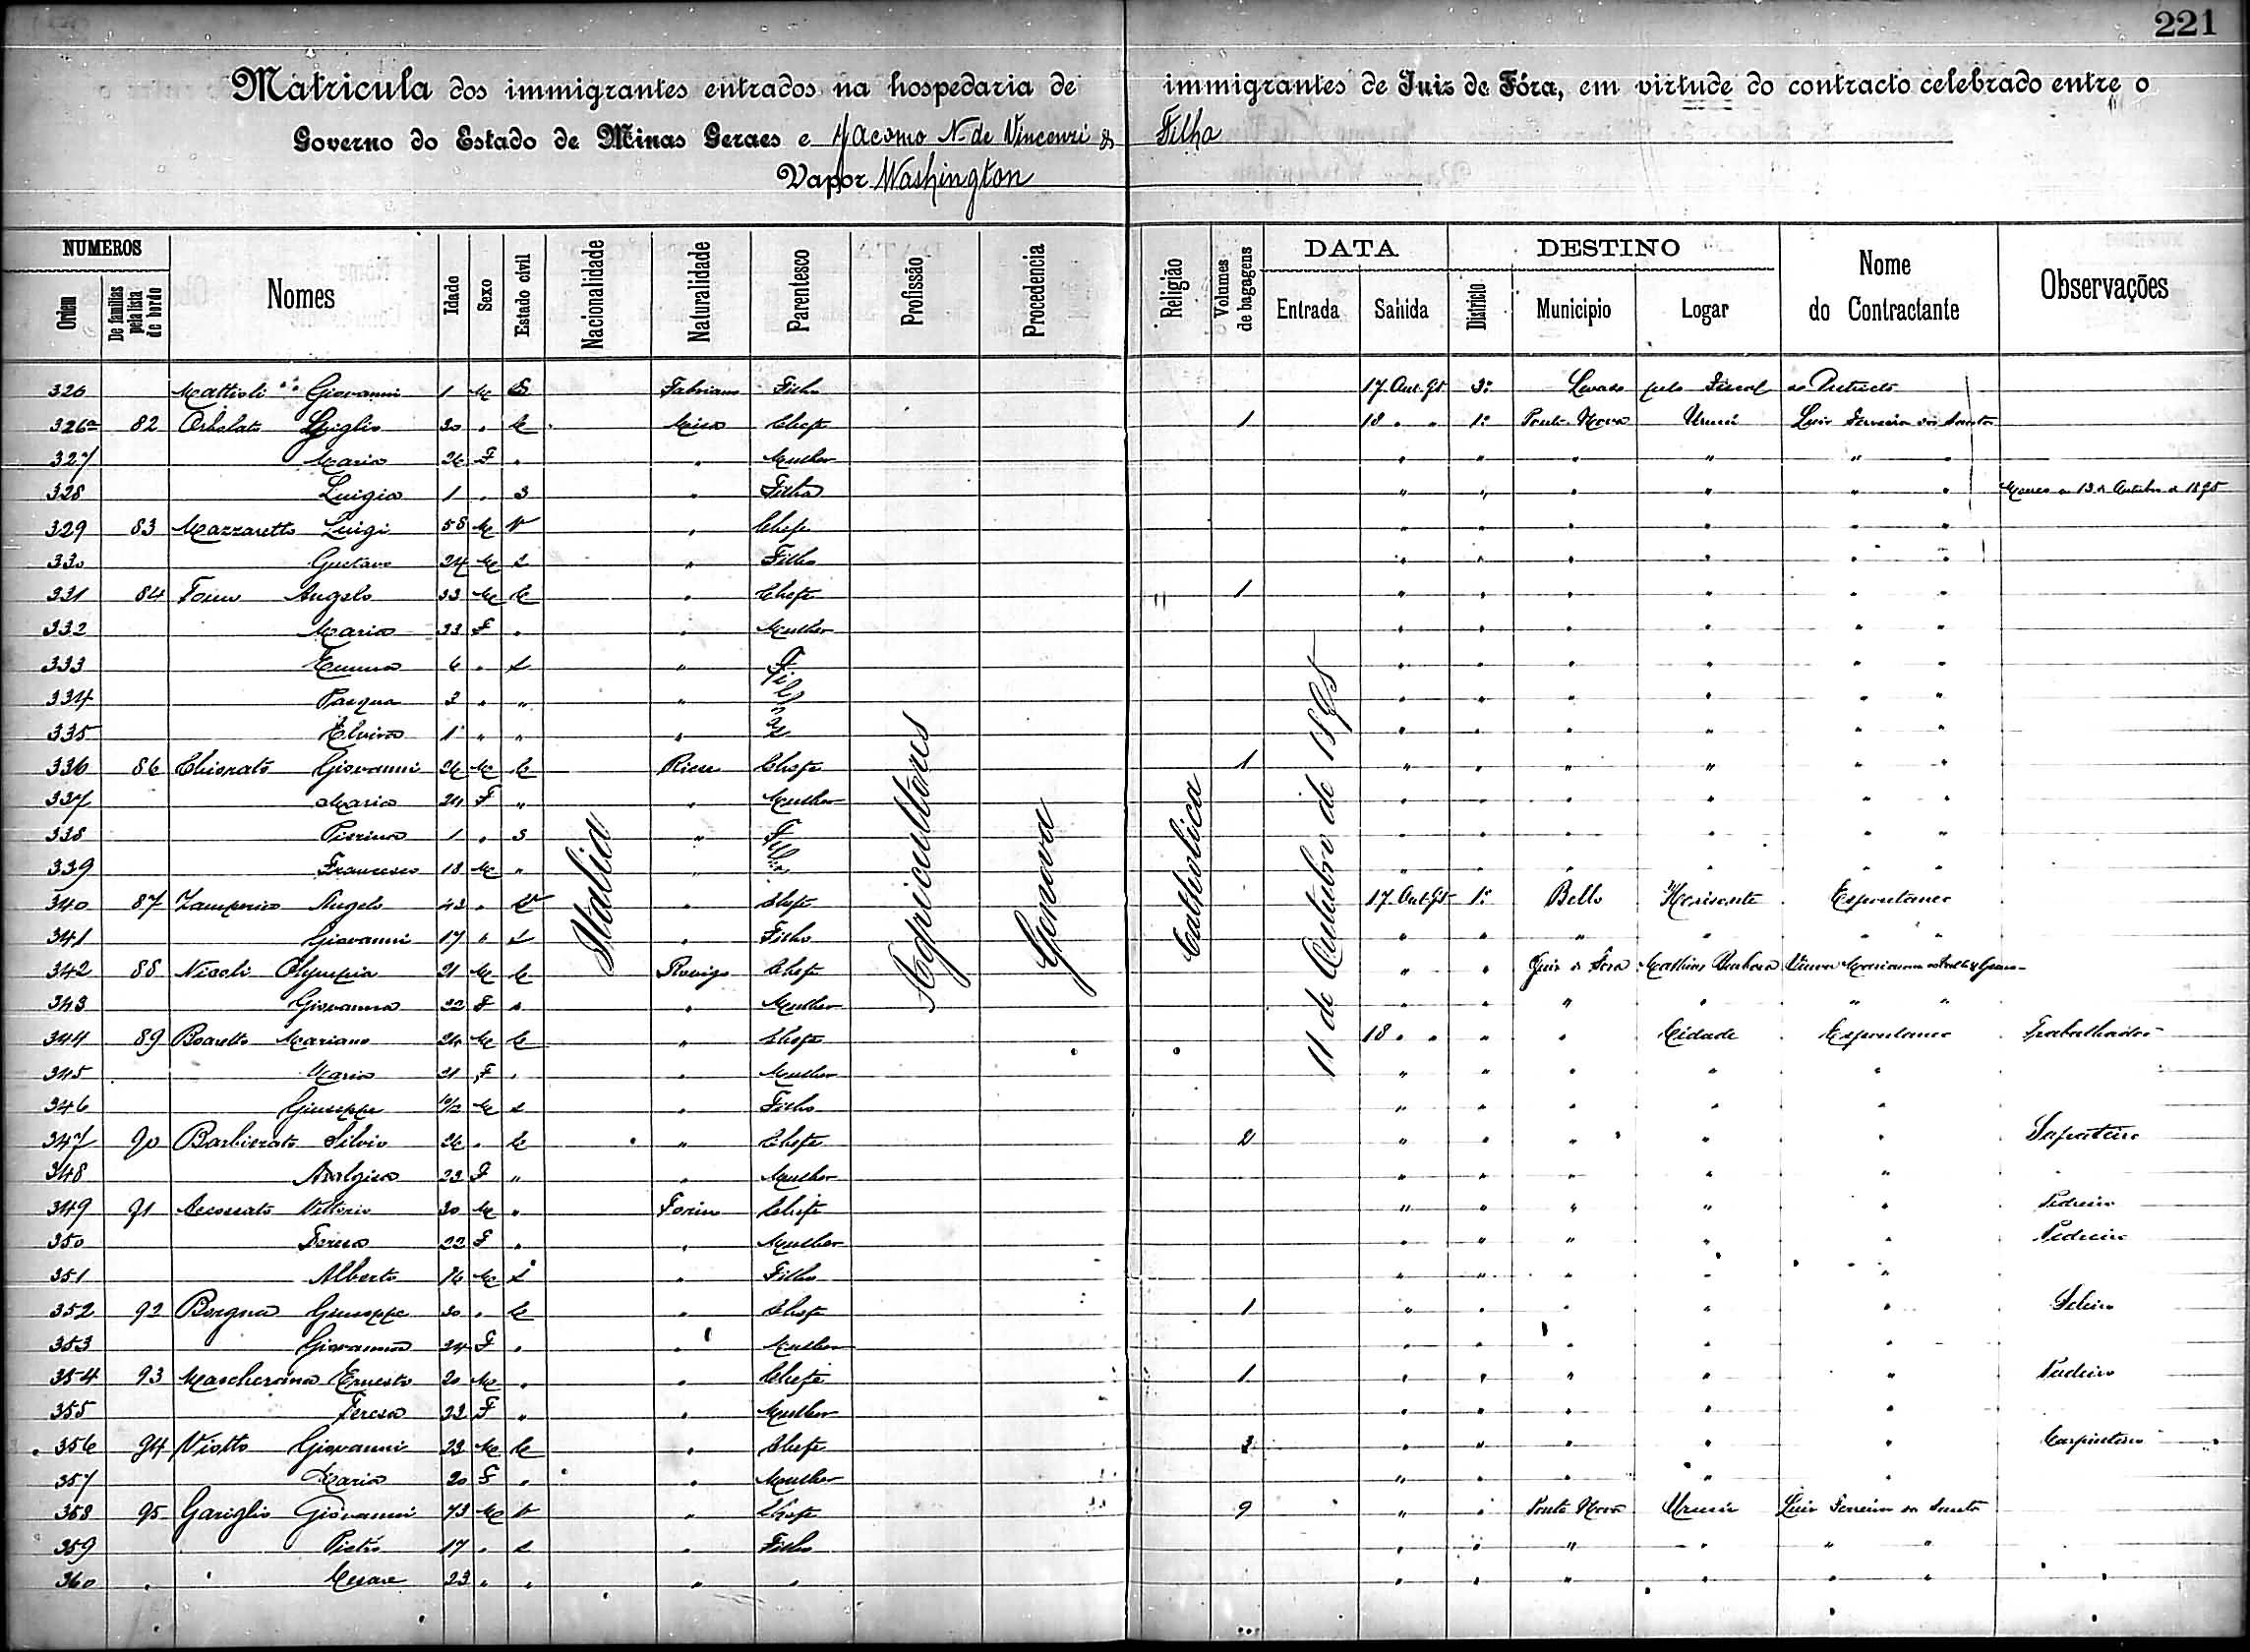 221
Matricula dos immigrantes entrados na hospedaria de immigrantes de Juiz de Fóra, em virtude do contracto celebrado entre o
Governo do Estado de Minas Geraes e Jacomo N. de Vincenzi & Filho
Vapor Washington
NUMEROS DATA DESTINO
Ordem De familias pela lista de bordo Nomes Idade Sexo Estado civil Nacionalidade Naturalidade Parentesco Profissão Procedencia Religião Volumes de bagagens Entrada Sahida Districto Municipio Logar Nome do Contractante Observações
Italia Agricultores Genova Catholica 11 de Outubro de 1895
326 Mattioli Giovanni 1 M S Fabriano Filho 17. Out. 95 3º Levado pelo Fiscal do Districto
326a 82 Luiglio 30 " C Chefe 1 18 " " 1º Ponte Nova Urucú Luiz Ferreira dos Santos
327 Maria 26 F " " Mulher " " " " " "
328 Luigia 1 " S " Filha " " " " " " Morreu em 13 de Outubro de 1895
329 83 Mazzaretto Luigi 55 M V " Chefe " " " " " "
330 Gustavo 24 M S " Filho " " " " " "
331 84 Angelo 33 M C " Chefe 1 " " " " " "
332 Maria 33 F " " Mulher " " " " " "
333 Emma 6 " S " Filhas " " " " " "
334 Pasqua 3 " " " " " " " " "
335 Elvira 1 " " " " " " " " "
336 86 Chiorato Giovanni 26 M C Riese Chefe 1 " " " " " "
337 Maria 24 F " " Mulher " " " " " "
338 Pierina 1 " S " Filhos " " " " " "
339 Francesco 18 M " " " " " " " "
340 87 Angelo 43 " V " Chefe 17. Out. 95 1º Bello Horisonte Espontaneo
341 Giovanni 17 " S " Filho " " " " " "
342 88 Nicoli Olympia 21 M C Rovigo Chefe " " Juiz de Fora Mathias Barbosa Viuva
343 Giovanna 22 F " " Mulher " " " " " "
344 89 Boaretto Mariano 24 M C " Chefe 18 " " " " Cidade Espontaneo Trabalhador
345 Maria 21 F " " Mulher " " " " "
346 Giuseppe 10/12 M S " Filho " " " " "
347 90 Barbierato Silvio 26 " C " Chefe 2 " " " " " Sapateiro
348 23 F " " Mulher " " " " " "
349 91 Vittorio 30 M " Torino Chefe " " " " " Pedreiro
350 Teresa 22 F " " Mulher " " " " " Pedreiro
351 Alberto 16 M S " Filho " " " " "
352 92 Borgna Giuseppe 30 " C " Chefe 1 " " " " " Seleiro
353 Giovanna 24 F " " Mulher " " " " "
354 93 Mascherana Ernesto 20 M " " Chefe 1 " " " " " Padeiro
355 Teresa 23 F " " Mulher " " " " "
356 94 Viotto Giovanni 23 M C " Chefe 3 " " " " " Carpinteiro
357 Maria 20 F " " Mulher " " " " "
358 95 Gariglio Giovanni 73 M V " Chefe 9 " " Ponte Nova Urucú Luiz Ferreira dos Santos
359 Pietro 17 " S " Filho " " " " " "
360 Cesare 23 " " " " " " " " " "